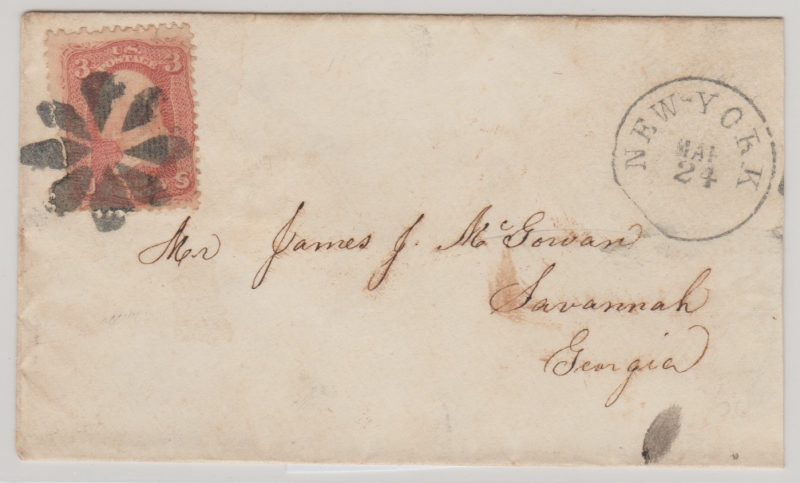 3 U.S. 3
POSTAGE
S
NEW-YORK
MAR
24
Mr James J. McGowan
Savannah
Georgia